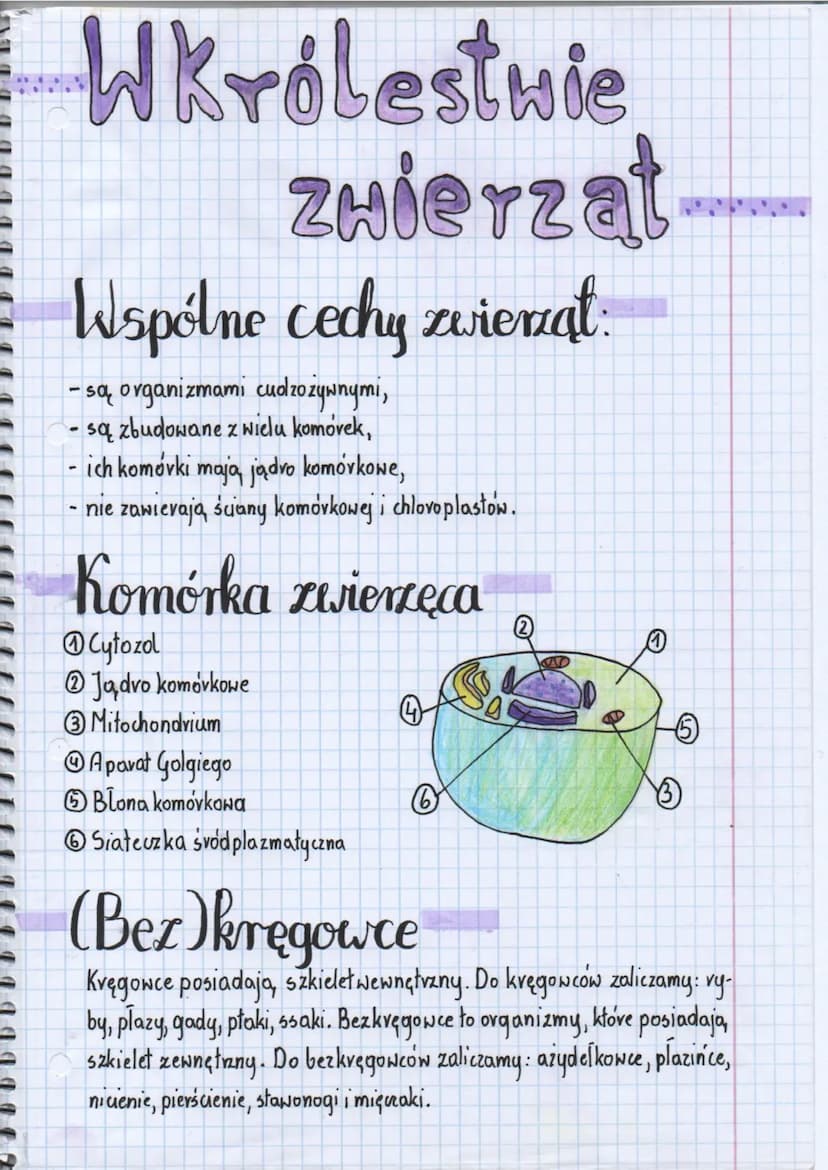 W Królestwie
zwierząt
Wspólne cechy zwierząt:
- są organizmami cudzożywnymi,
- są zbudowane z wielu komórek,
- ich komórki mają jądro komórkowe,
- nie zawierają ściany komórkowej i chloroplastów.
Komórka zwierzęca
① Cytozol
② Jądro komórkowe
③ Mitochondrium
④ Aparat Golgiego
⑤ Błona komórkowa
⑥ Siateczka śródplazmatyczna
②
①
④
⑤
⑥
③
(Bez)kręgowce
Kręgowce posiadają szkielet wewnętrzny. Do kręgowców zaliczamy: ry-
by, płazy, gady, ptaki, ssaki. Bezkręgowce to organizmy, które posiadają
szkielet zewnętrzny. Do bezkręgowców zaliczamy: ażydełkowce, płazińce,
nicienie, pierścienie, stawonogi i mięczaki.